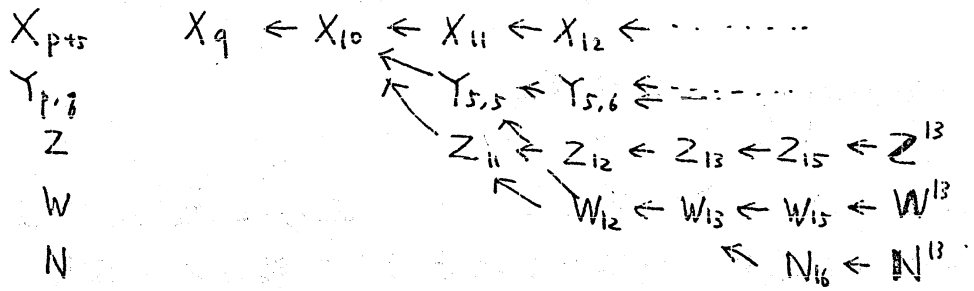 X_{p+5} X_9 ← X_{10} ← X_{11} ← X_{12} ← ........
Y_{p,q} Y_{5,5} ← Y_{5,6} ⇇ ........
Z Z_{11} ← Z_{12} ← Z_{13} ← Z_{15} ← Z^{13}
W W_{12} ← W_{13} ← W_{15} ← W^{13}
N N_{16} ← N^{13}